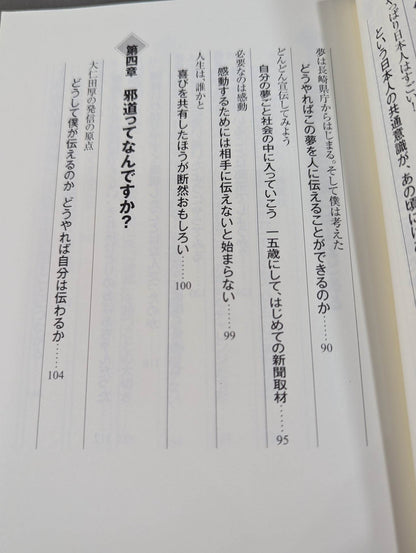 っぱり日本人はすごい
という日本人の共通意識が、あの頃
夢は長崎県庁からはじまる。そして僕は考えた
どうやればこの夢を人に伝えることができるのか……90
どんどん宣伝してみよう
自分の夢ごと社会の中に入っていこう 一五歳にして、はじめての新聞取材……95
必要なのは感動
感動するためには相手に伝えないと始まらない……99
人生は、誰かと
喜びを共有したほうが断然おもしろい……100
第四章 邪道ってなんですか?
大仁田厚の発信の原点
どうして僕が伝えるのか どうやれば自分は伝わるか……104